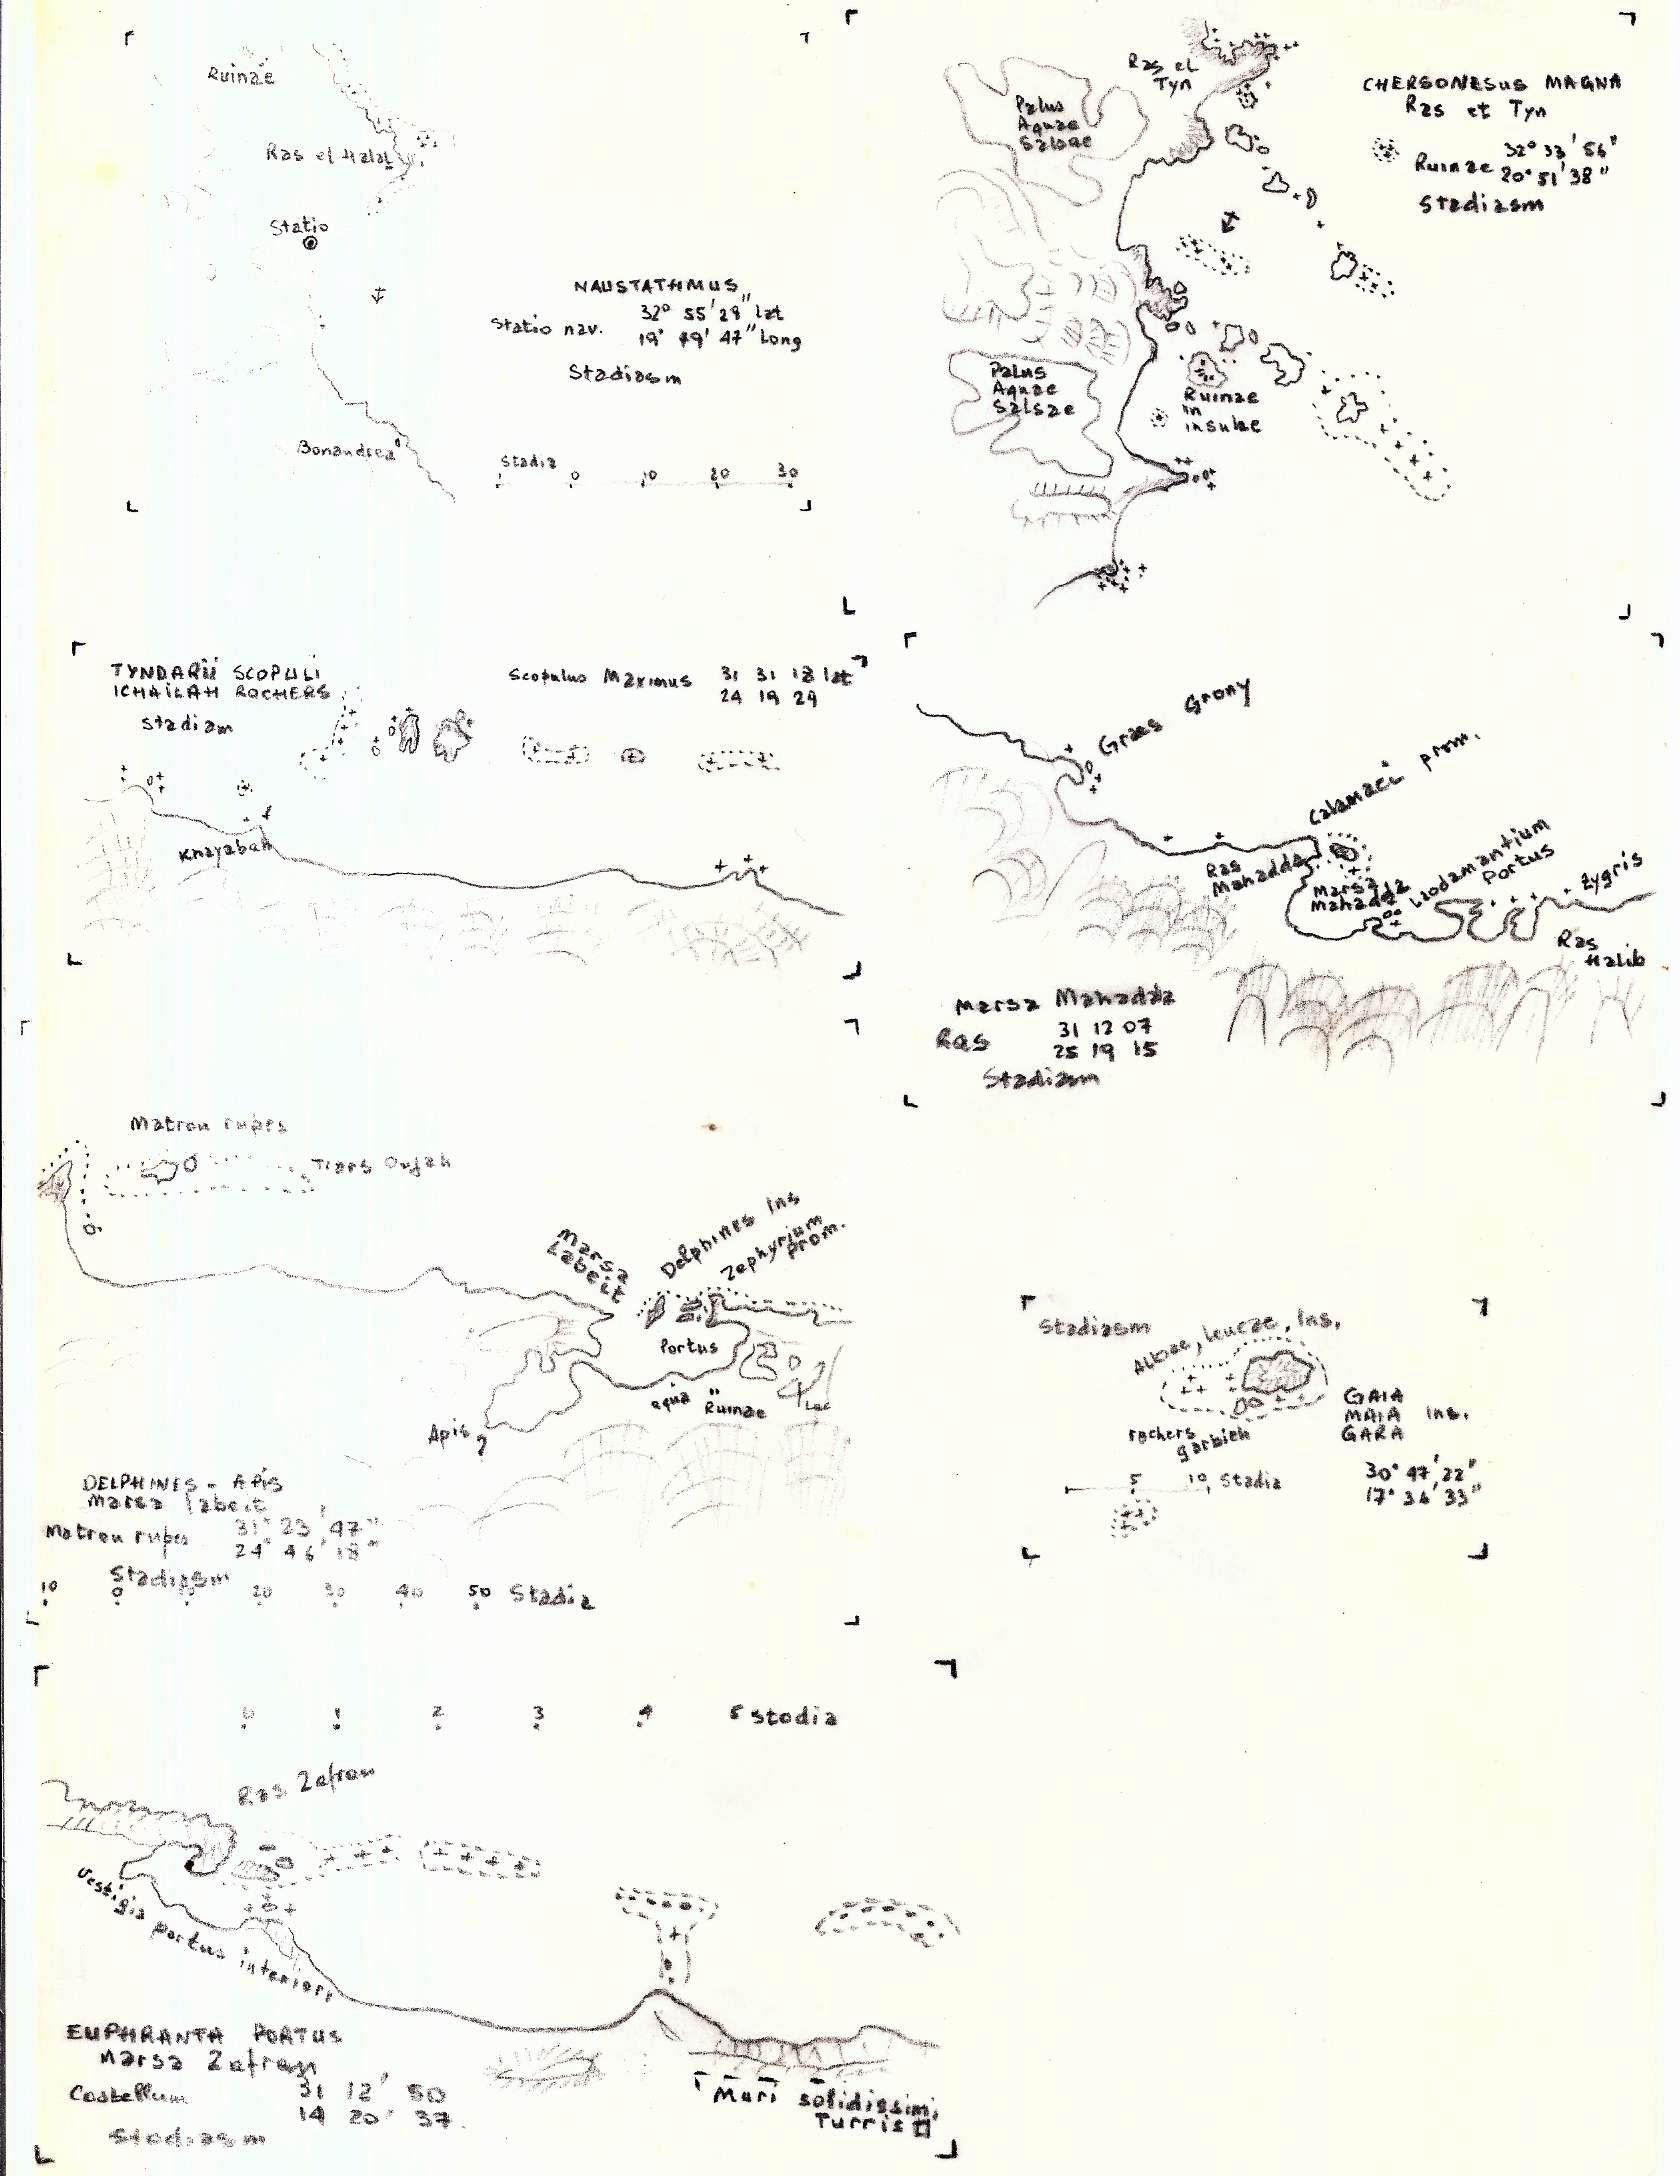 Ruinae
Ras el Halal
Statio
NAUSTATHMUS
32° 55' 29" lat
Statio nav.
19° 49' 47" Long
Stadiasm
Bonandrea
Stadia 0 10 20 30
Ras el
Tyn
Palus
Aquae
Salsae
CHERSONESUS MAGNA
Ras et Tyn
32° 33' 56"
Ruinae 20° 51' 38"
Stadiasm
Palus
Aquae
Salsae
Ruinae
in
insulae
TYNDARII SCOPULI
ICHAILAH ROCHERS
Stadiam
Scopulus Maximus 31 31 18 lat
24 19 29
Knayabah
Graes Grony
Calamaei prom.
Ras
Mahadda
Marsa
Mahadda
Laodamantium
Portus
Zygris
Ras
Halib
Marsa Mahadda
Ras 31 12 07
25 19 15
Stadiam
Matron rupes
Tiars Oujah
Marsa
Labeit
Delphines Ins
Zephyrium
prom.
Portus
aqua Ruinae
Lac
Apis ?
DELPHINES - APIS
Marsa labeit
Matron rupes 31° 23' 47"
24° 46' 18"
Stadiasm
10 0 20 30 40 50 Stadia
Stadiasm
Albae, leucae, Ins.
GAIA
MAIA Ins.
GARA
rochers
garbieh
5 10 Stadia
30° 47' 22"
17° 34' 33"
0 1 2 3 4 5 Stadia
Ras Zafran
Vestigia Portus interiori
EUPHRANTA PORTUS
Marsa Zafran
Castellum 31 12' 50
14 20' 37
Stadiasm
Muri solidissimi
Turris